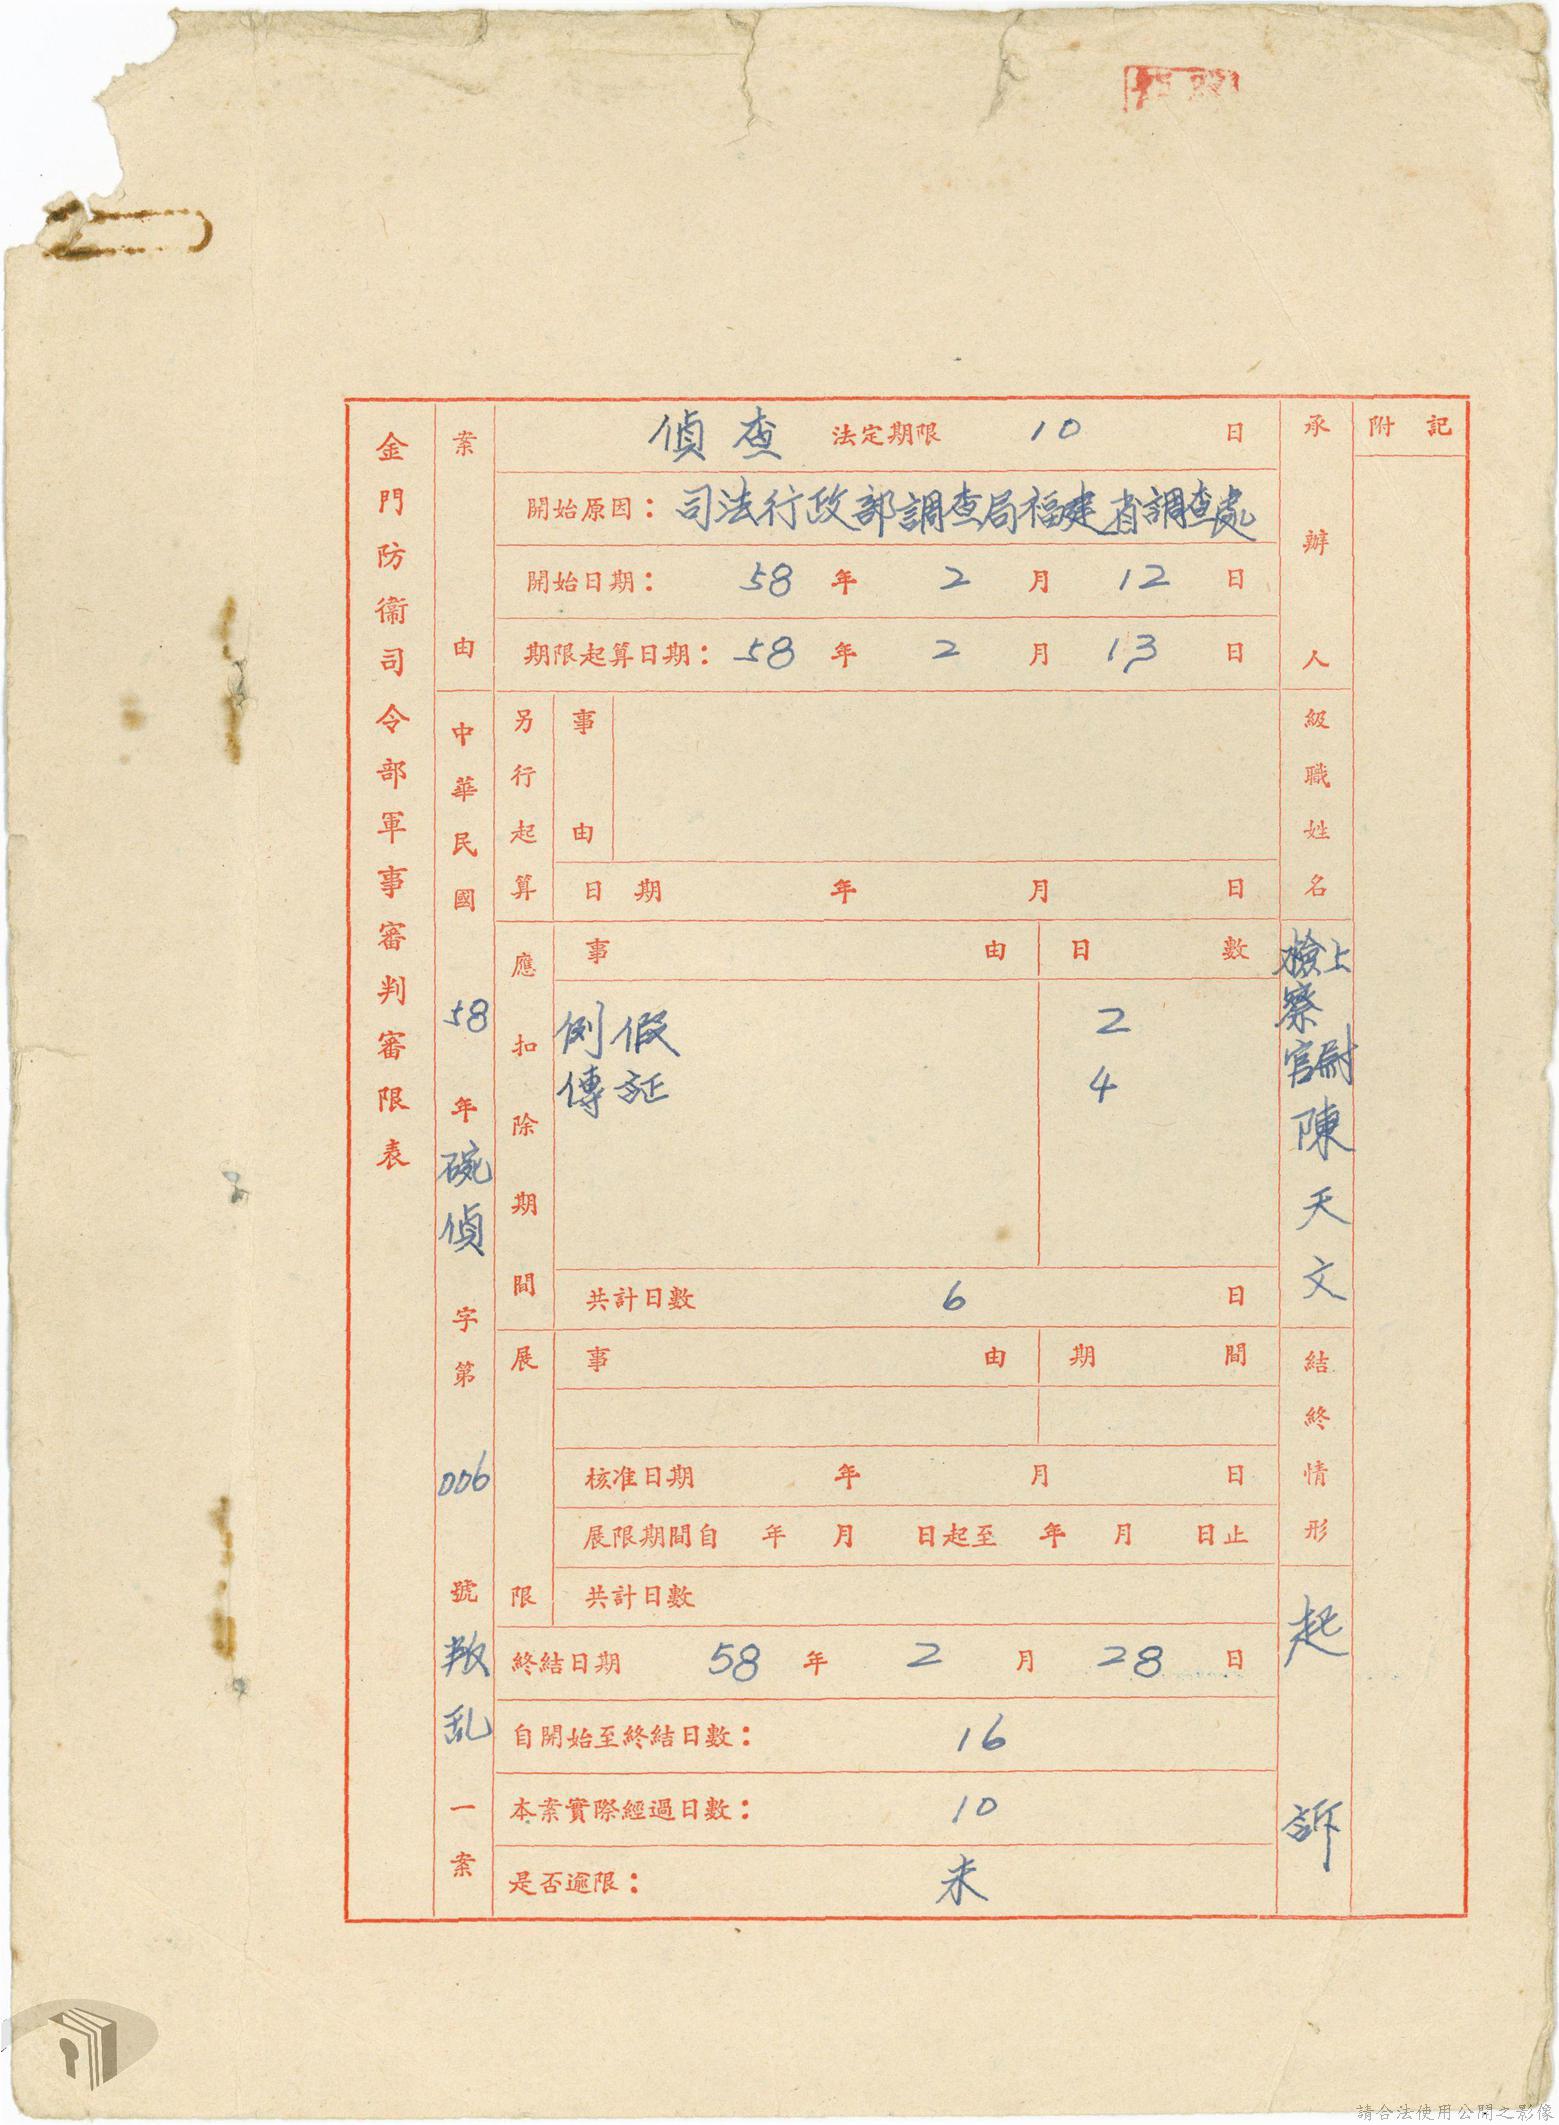 金門防衛司令部軍事審判審限表
案由
中華民國58年碗偵字第006號叛乱一案
偵查 法定期限 10 日
開始原因：司法行政部調查局福建省調查處
開始日期：58年2月12日
期限起算日期：58年2月13日
另行起算
事由
日期 年 月 日
應扣除期間
事由 日數
例假 2
傳証 4
共計日數 6 日
展限
事由 期間
核准日期 年 月 日
展限期間自 年 月 日起至 年 月 日止
共計日數
終結日期 58年2月28日
自開始至終結日數：16
本案實際經過日數：10
是否逾限：未
承辦人級職姓名
上尉
檢察官
陳天文
結終情形
起訴
附記
請合法使用公開之影像